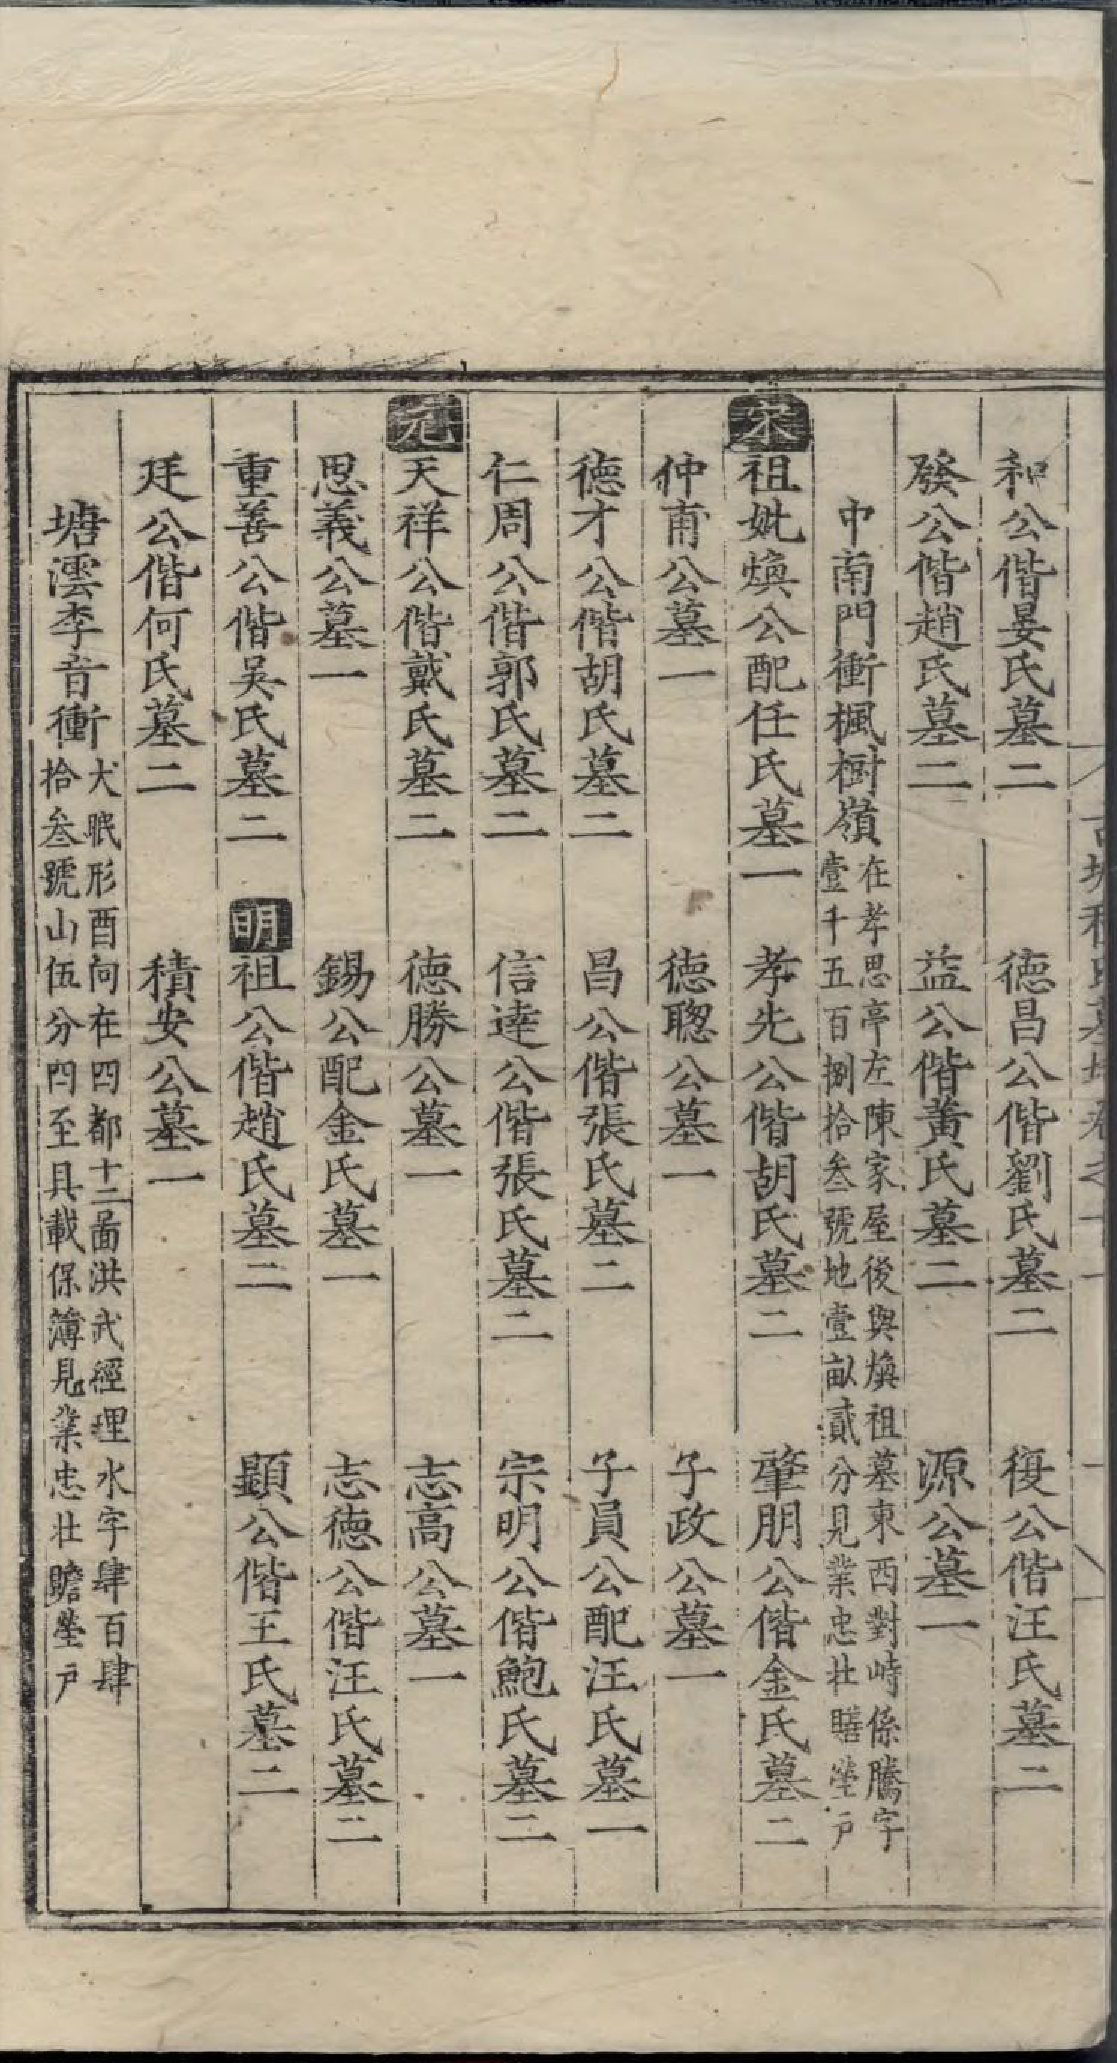 和公偕晏氏墓二　德昌公偕劉氏墓二　復公偕汪氏墓二
發公偕趙氏墓二　益公偕黃氏墓二　源公墓一
中南門衝楓樹嶺
在孝思亭左陳家屋後與煥祖墓東西對峙係騰字
壹千五百捌拾叁號地壹畝貳分見業忠壯膳塋户
宋　祖妣煥公配任氏墓一　孝先公偕胡氏墓二　肇朋公偕金氏墓二
仲甫公墓一　德聰公墓一　子政公墓一
德才公偕胡氏墓二　昌公偕張氏墓二　子員公配汪氏墓一
仁周公偕郭氏墓二　信達公偕張氏墓二　宗明公偕鮑氏墓二
元　天祥公偕戴氏墓二　德勝公墓一　志高公墓一
思義公墓一　錫公配金氏墓一　志德公偕汪氏墓二
重善公偕吳氏墓二　明　祖公偕趙氏墓二　顯公偕王氏墓二
廷公偕何氏墓二　積安公墓一
塘澐李音衝
犬眠形酉向在四都十二啚洪武經理水字肆百肆
拾叁號山伍分四至具載保簿見業忠壯贍塋户